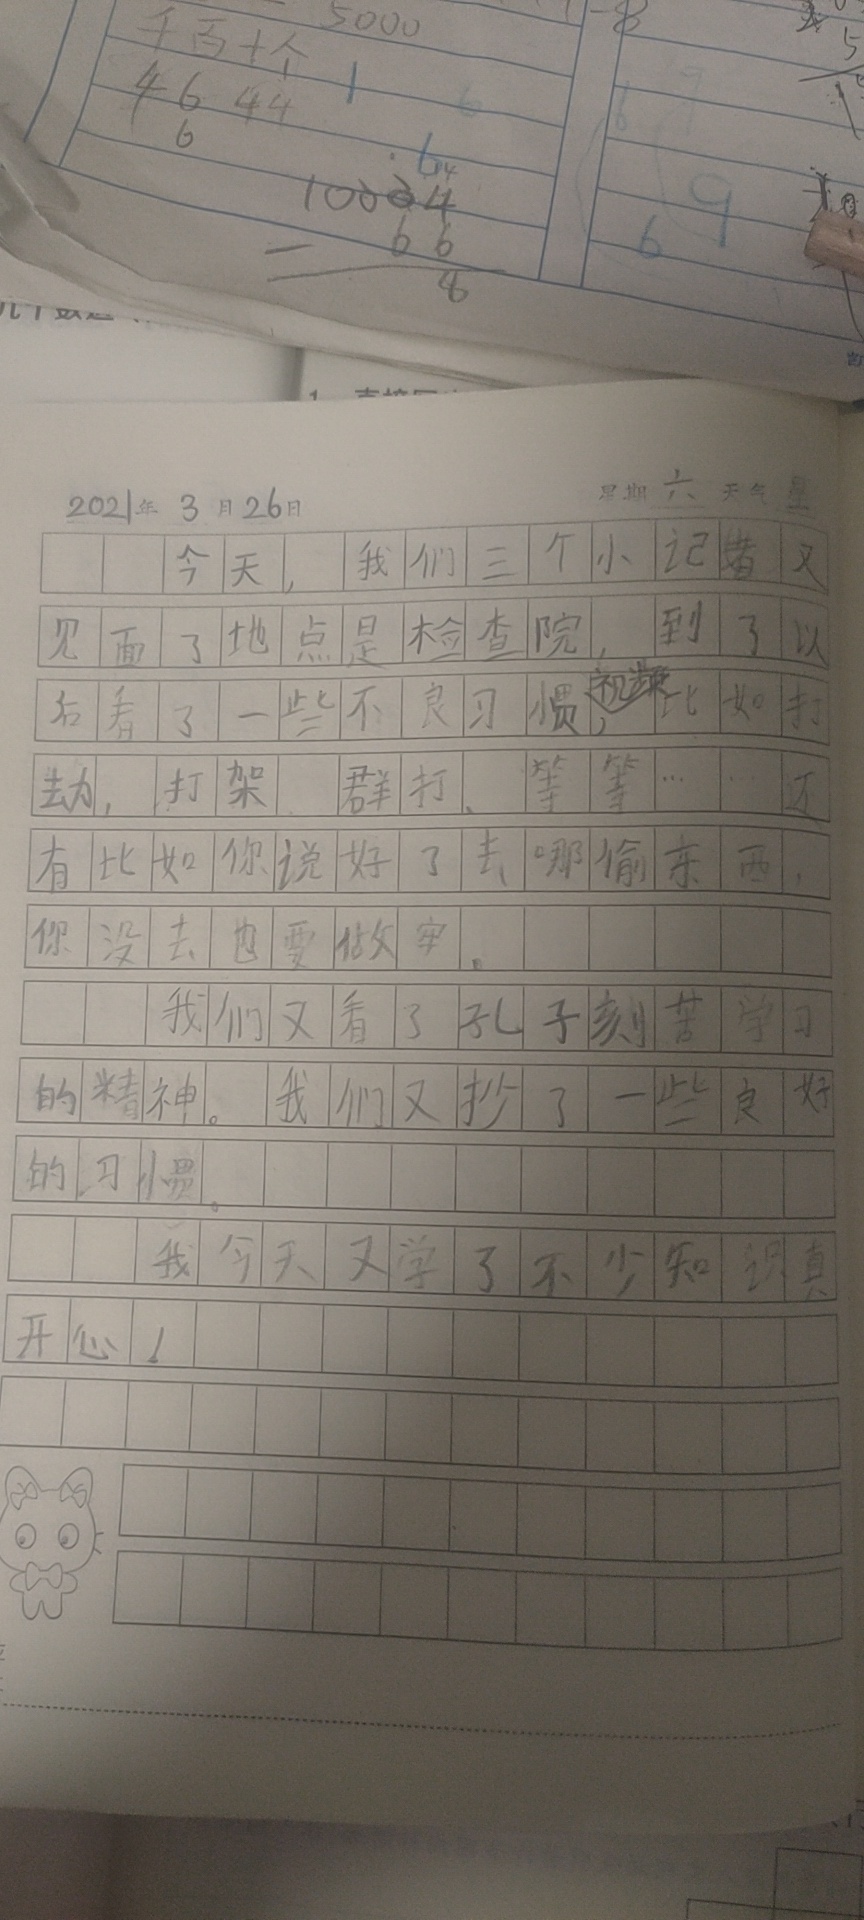 5000
千百十个
4 6 4 4 1
6
6 4
10004
6 6
8
6
9
6
2021年 3月26日 星期 六 天气 星
今天，我们三个小记者又
见面了地点是检查院，到了以
后看了一些不良习惯视频，比如打
劫，打架 群打、等等……还
有比如你说好了去哪偷东西，
你没去也要做牢。
我们又看了孔子刻苦学习
的精神。我们又抄了一些良好
的习惯。
我今天又学了不少知识真
开心！